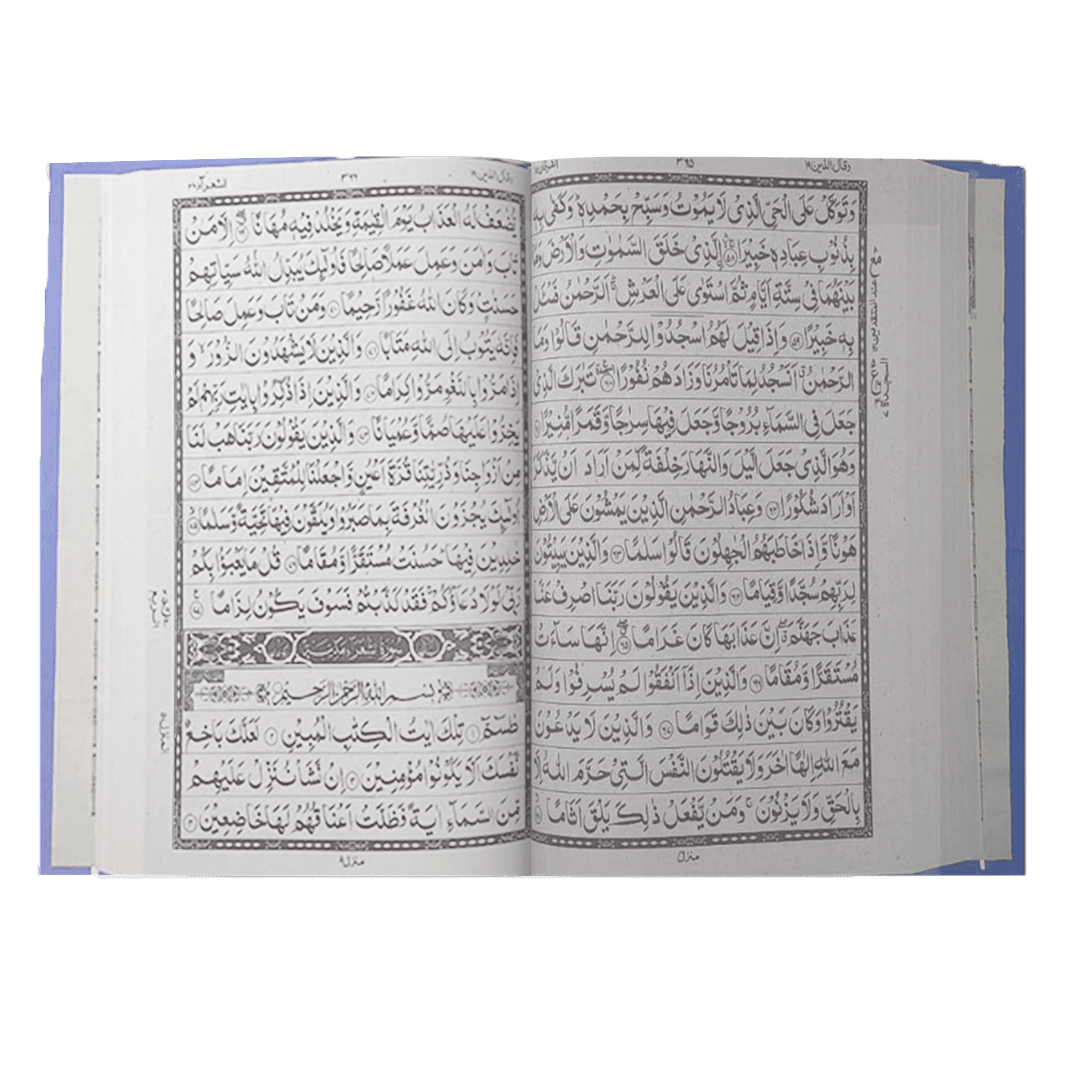 وقال الذين ١٩
٣٩٥
وَتَوَكَّلْ عَلَى الْحَيِّ الَّذِىْ لَا يَمُوْتُ وَسَبِّحْ بِحَمْدِهٖ ؕ وَكَفٰى بِهٖ
بِذُنُوْبِ عِبَادِهٖ خَبِيْرَا ۟ۙۛ ﴿۵۸﴾ اۨلَّذِىْ خَلَقَ السَّمٰوٰتِ وَالْاَرْضَ وَمَا
بَيْنَهُمَا فِىْ سِتَّةِ اَيَّامٍ ثُمَّ اسْتَوٰى عَلَى الْعَرْشِ ۛۚ اَلرَّحْمٰنُ فَسْـَٔلْ
بِهٖ خَبِيْرًا ﴿۵۹﴾ وَاِذَا قِيْلَ لَهُمُ اسْجُدُوْا لِلرَّحْمٰنِ قَالُوْا وَمَا
الرَّحْمٰنُ ٭ اَنَسْجُدُ لِمَا تَاْمُرُنَا وَزَادَهُمْ نُفُوْرًا ﴿۶۰﴾ تَبٰرَكَ الَّذِىْ
جَعَلَ فِى السَّمَآءِ بُرُوْجًا وَّجَعَلَ فِيْهَا سِرٰجًا وَّقَمَرًا مُّنِيْرًا ﴿۶۱﴾
وَهُوَ الَّذِىْ جَعَلَ الَّيْلَ وَالنَّهَارَ خِلْفَةً لِّمَنْ اَرَادَ اَنْ يَّذَّكَّرَ
اَوْ اَرَادَ شُكُوْرًا ﴿۶۲﴾ وَعِبَادُ الرَّحْمٰنِ الَّذِيْنَ يَمْشُوْنَ عَلَى الْاَرْضِ
هَوْنًا وَّاِذَا خَاطَبَهُمُ الْجٰهِلُوْنَ قَالُوْا سَلٰمًا ﴿۶۳﴾ وَالَّذِيْنَ يَبِيْتُوْنَ
لِرَبِّهِمْ سُجَّدًا وَّقِيَامًا ﴿۶۴﴾ وَالَّذِيْنَ يَقُوْلُوْنَ رَبَّنَا اصْرِفْ عَنَّا
عَذَابَ جَهَنَّمَ ۖ اِنَّ عَذَابَهَا كَانَ غَرَامًا ﴿۶۵﴾ اِنَّهَا سَآءَتْ
مُسْتَقَرًّا وَّمُقَامًا ﴿۶۶﴾ وَالَّذِيْنَ اِذَاۤ اَنْفَقُوْا لَمْ يُسْرِفُوْا وَلَمْ
يَقْتُرُوْا وَكَانَ بَيْنَ ذٰلِكَ قَوَامًا ﴿۶۷﴾ وَالَّذِيْنَ لَا يَدْعُوْنَ
مَعَ اللّٰهِ اِلٰهًا اٰخَرَ وَلَا يَقْتُلُوْنَ النَّفْسَ الَّتِىْ حَرَّمَ اللّٰهُ اِلَّا
بِالْحَقِّ وَلَا يَزْنُوْنَ ۚ وَمَنْ يَّفْعَلْ ذٰلِكَ يَلْقَ اَثَامًا ﴿۶۸﴾
منزل
وقال الذين ١٩
٣٩٦
الشعرآء ٢٦
يُّضٰعَفْ لَهُ الْعَذَابُ يَوْمَ الْقِيٰمَةِ وَيَخْلُدْ فِيْهٖ مُهَانًا ﴿۶۹﴾ اِلَّا مَنْ
تَابَ وَاٰمَنَ وَعَمِلَ عَمَلًا صَالِحًا فَاُولٰٓئِكَ يُبَدِّلُ اللّٰهُ سَيِّاٰتِهِمْ
حَسَنٰتٍ ؕ وَكَانَ اللّٰهُ غَفُوْرًا رَّحِيْمًا ﴿۷۰﴾ وَمَنْ تَابَ وَعَمِلَ صَالِحًا
فَاِنَّهٗ يَتُوْبُ اِلَى اللّٰهِ مَتَابًا ﴿۷۱﴾ وَالَّذِيْنَ لَا يَشْهَدُوْنَ الزُّوْرَ ۙ وَ
اِذَا مَرُّوْا بِاللَّغْوِ مَرُّوْا كِرَامًا ﴿۷۲﴾ وَالَّذِيْنَ اِذَا ذُكِّرُوْا بِاٰيٰتِ رَبِّهِمْ لَمْ
يَخِرُّوْا عَلَيْهَا صُمًّا وَّعُمْيَانًا ﴿۷۳﴾ وَالَّذِيْنَ يَقُوْلُوْنَ رَبَّنَا هَبْ لَنَا
مِنْ اَزْوَاجِنَا وَذُرِّيّٰتِنَا قُرَّةَ اَعْيُنٍ وَّاجْعَلْنَا لِلْمُتَّقِيْنَ اِمَامًا ﴿۷۴﴾
اُولٰٓئِكَ يُجْزَوْنَ الْغُرْفَةَ بِمَا صَبَرُوْا وَيُلَقَّوْنَ فِيْهَا تَحِيَّةً وَّسَلٰمًا ﴿۷۵﴾
خٰلِدِيْنَ فِيْهَا ؕ حَسُنَتْ مُسْتَقَرًّا وَّمُقَامًا ﴿۷۶﴾ قُلْ مَا يَعْبَؤُا بِكُمْ
رَبِّىْ لَوْلَا دُعَآؤُكُمْ ۚ فَقَدْ كَذَّبْتُمْ فَسَوْفَ يَكُوْنُ لِزَامًا ﴿۷۷﴾
سورة الشعراء مكية
بِسْمِ اللّٰهِ الرَّحْمٰنِ الرَّحِيْمِ
طٰسٓمّٓ ﴿۱﴾ تِلْكَ اٰيٰتُ الْكِتٰبِ الْمُبِيْنِ ﴿۲﴾ لَعَلَّكَ بَاخِعٌ
نَّفْسَكَ اَلَّا يَكُوْنُوْا مُؤْمِنِيْنَ ﴿۳﴾ اِنْ نَّشَاْ نُنَزِّلْ عَلَيْهِمْ
مِّنَ السَّمَآءِ اٰيَةً فَظَلَّتْ اَعْنَاقُهُمْ لَهَا خٰضِعِيْنَ ﴿۴﴾
منزل